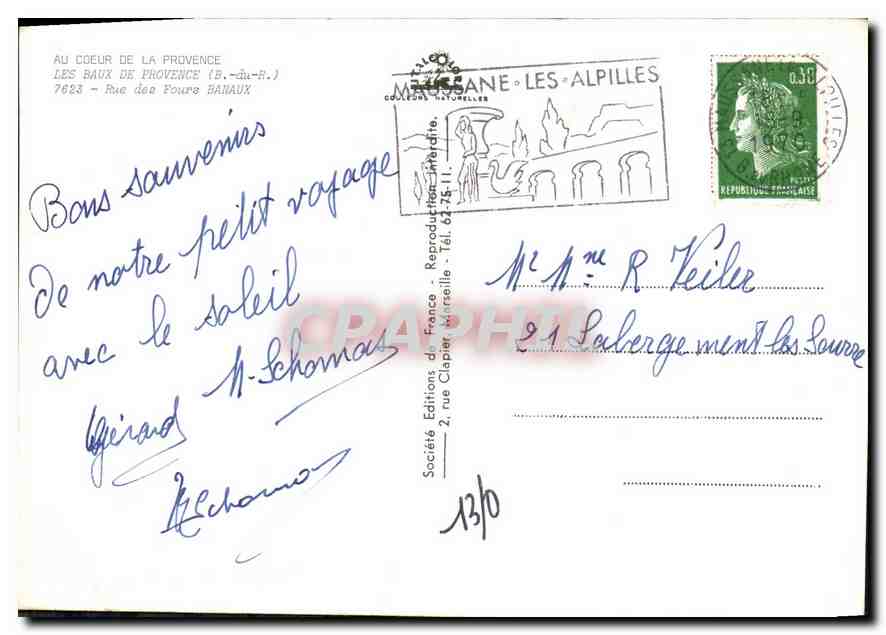 AU COEUR DE LA PROVENCE
LES BAUX DE PROVENCE (B.-du-R.)
7623 - Rue des Fours BANAUX
COULEURS NATURELLES
MAUSSANE-LES-ALPILLES
0.30
1970
POSTES
REPUBLIQUE FRANÇAISE
Bons souvenirs
de notre petit voyage
avec le soleil
M. Schomas
Gérard
Société Editions de France - Reproduction interdite.
2, rue Clapier, Marseille - Tél. 62-75-11.
Mr Mme R Veiler
21 Labergement les Seurre
13/0
CPAPHIL